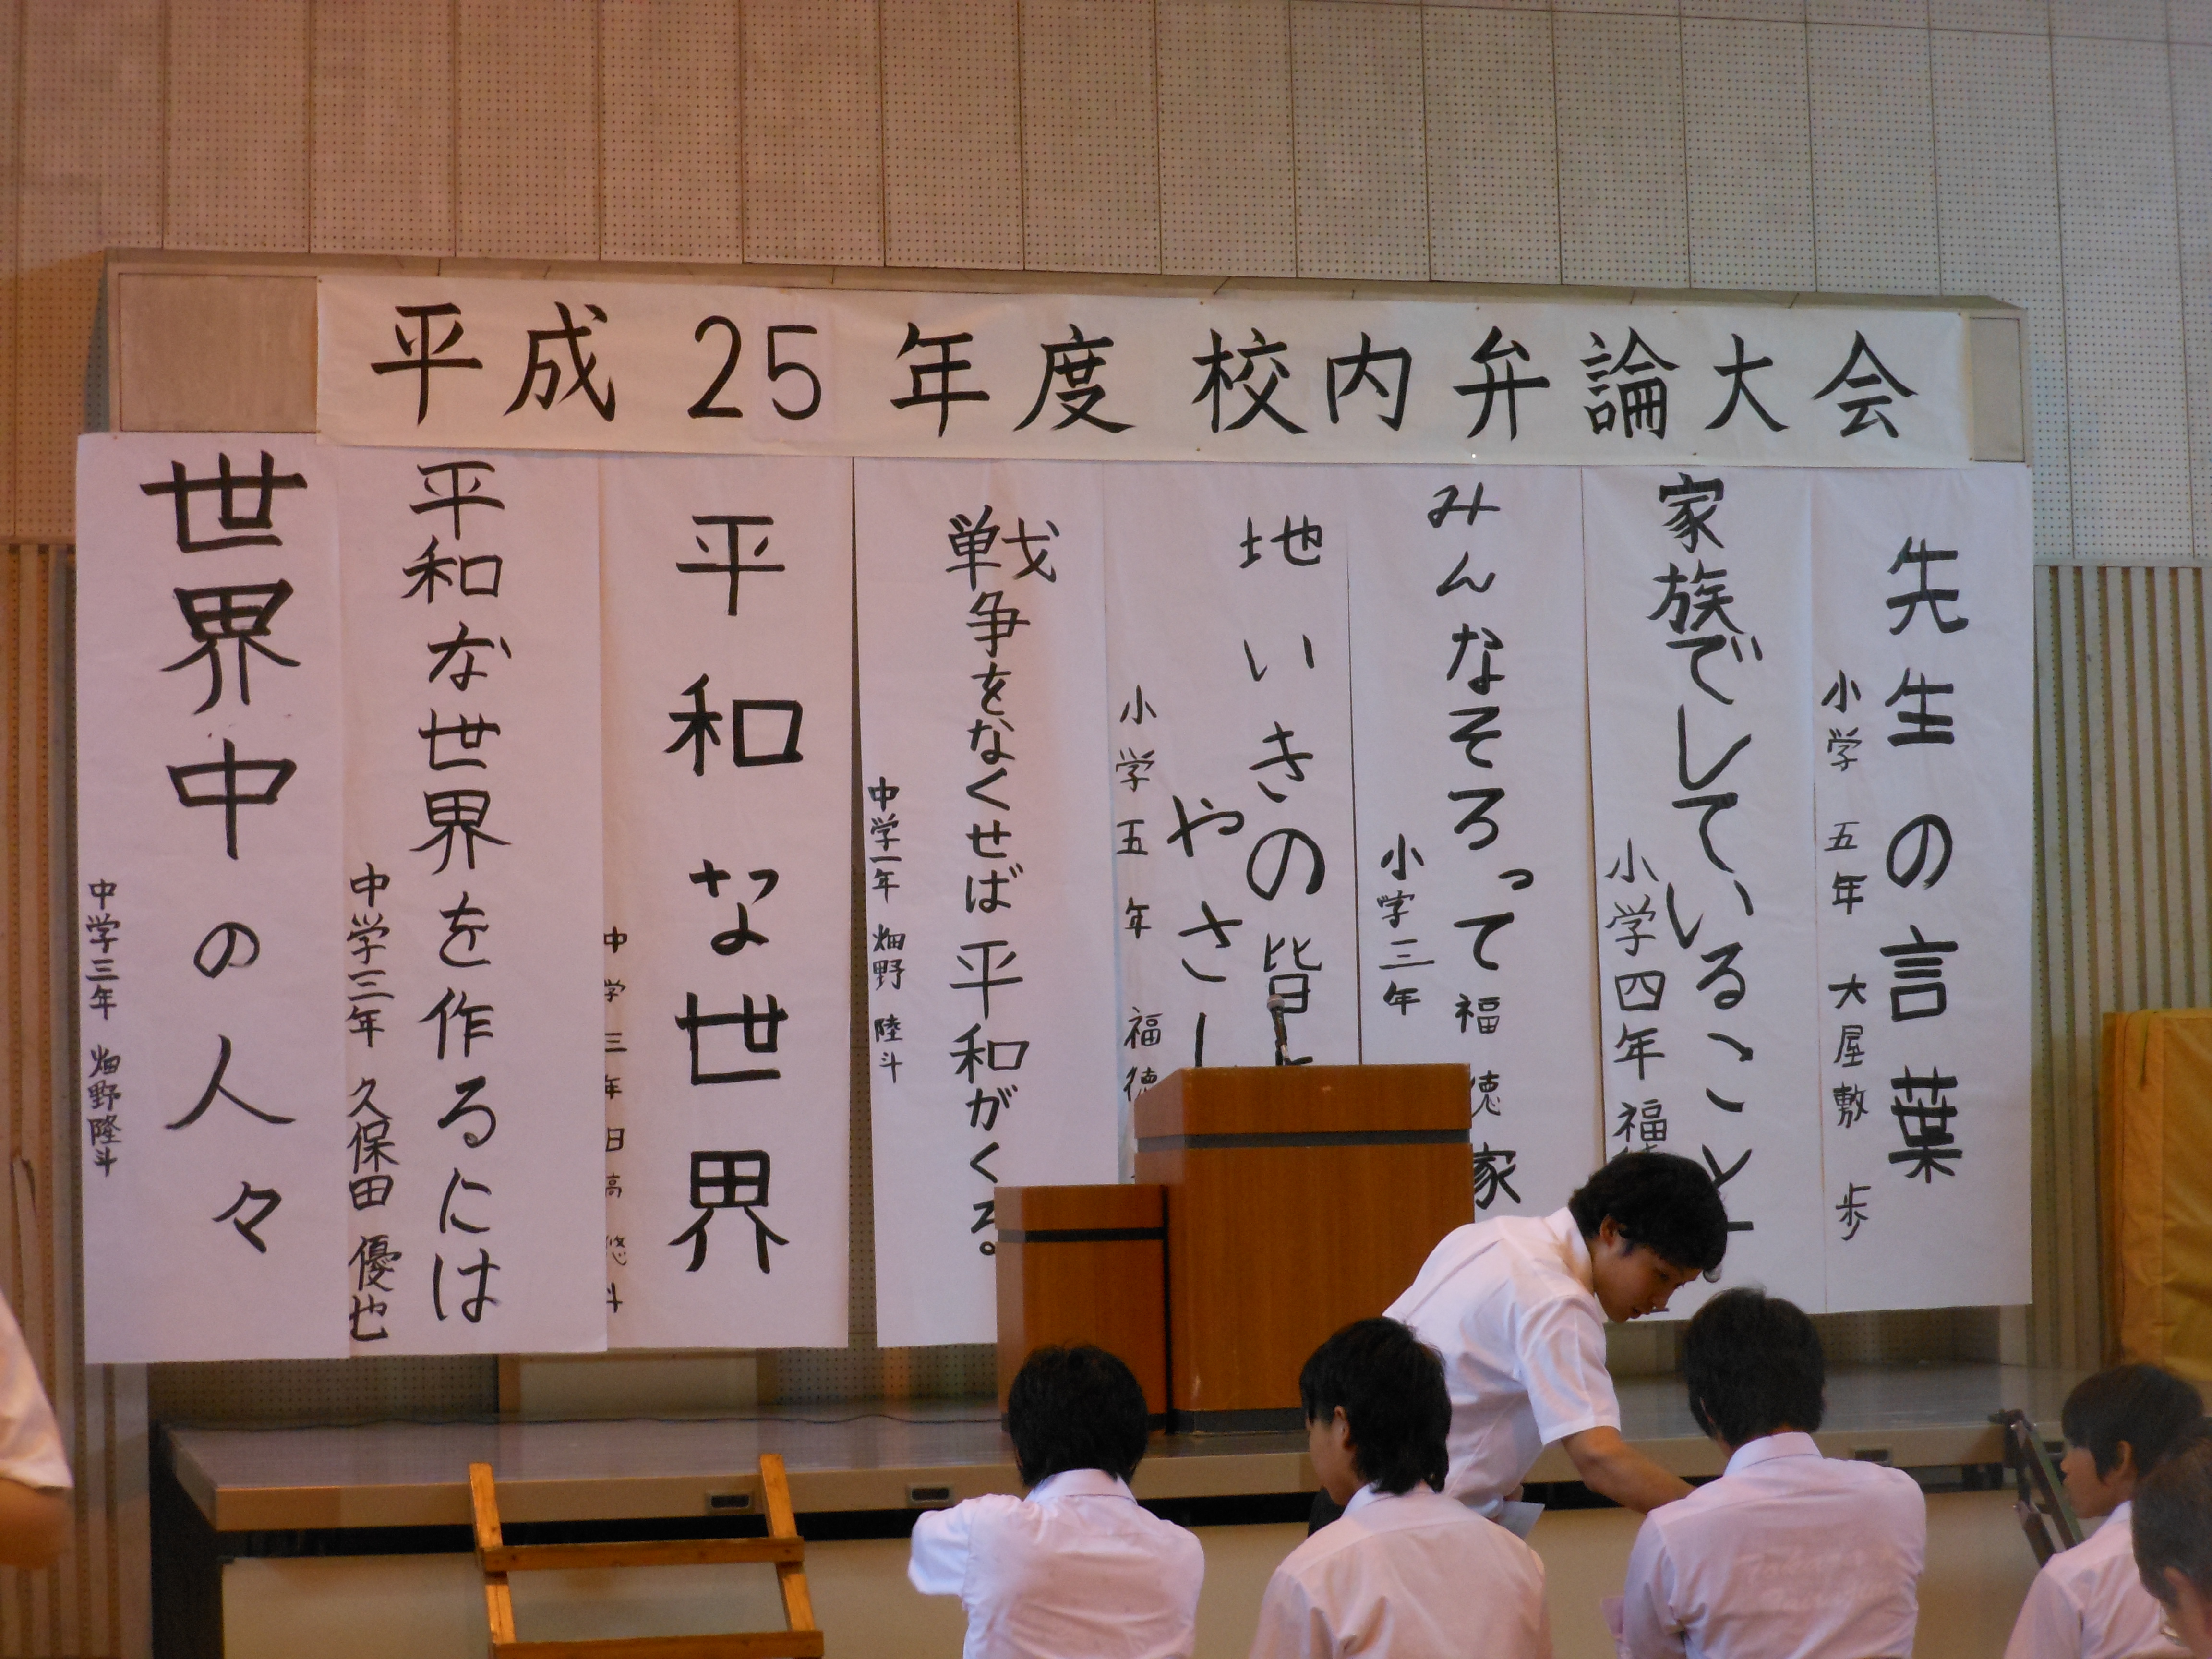 平成25年度校内弁論大会
先生の言葉
小学五年 大屋敷 歩
家族でしていること
小学四年 福
みんなそろって福徳家
小学三年
地いきの皆
やさし
小学五年 福徳
戦争をなくせば平和がくる。
中学一年 畑野 陸斗
平和な世界
中学三年日高悠斗
平和な世界を作るには
中学三年 久保田 優也
世界中の人々
中学三年 畑野隆斗